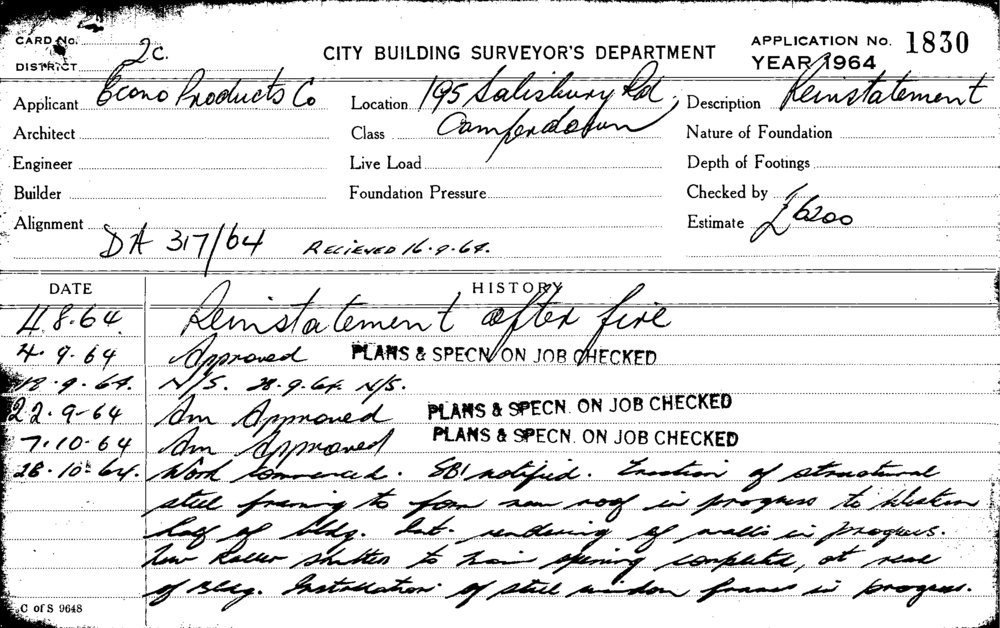 CARD No.
DISTRICT 2c.
CITY BUILDING SURVEYOR'S DEPARTMENT
APPLICATION No. 1830
YEAR 1964
Applicant Econo Products Co
Location 195 Salisbury Rd,
Description Reinstatement
Architect
Class Camperdown
Nature of Foundation
Engineer
Live Load
Depth of Footings
Builder
Foundation Pressure
Checked by
Alignment
Estimate £6200
DA 317/64 RECIEVED 16.9.64.
DATE HISTORY
4.8.64 Reinstatement after fire
4.9.64 Approved PLANS & SPECN. ON JOB CHECKED
18.9.64. N/S. 28.9.64. N/S.
22.9-64 Am Approved PLANS & SPECN. ON JOB CHECKED
7.10-64 Am Approved PLANS & SPECN. ON JOB CHECKED
28.10.64. Work commenced. SBI notified. Erection of structural
steel framing to form new roof in progress to Western
half of bldg. Int. rendering of walls in progress.
New Roller shutter to main opening completed, at rear
of Bldg. Installation of steel window frames in progress.
C of S 9648